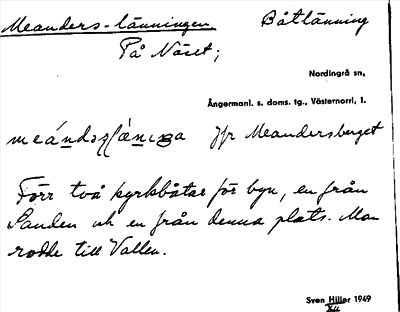 Meanders-länningen Båtlänning
På Näset;
Nordingrå sn,
Ångermanl. s. doms. tg., Västernorrl. l.
Jfr Meandersberget
Förr två kyrkbåtar för byn, en från
Sanden och en från denna plats. Man
rodde till Vallen.
Sven Hiller 1949
XII